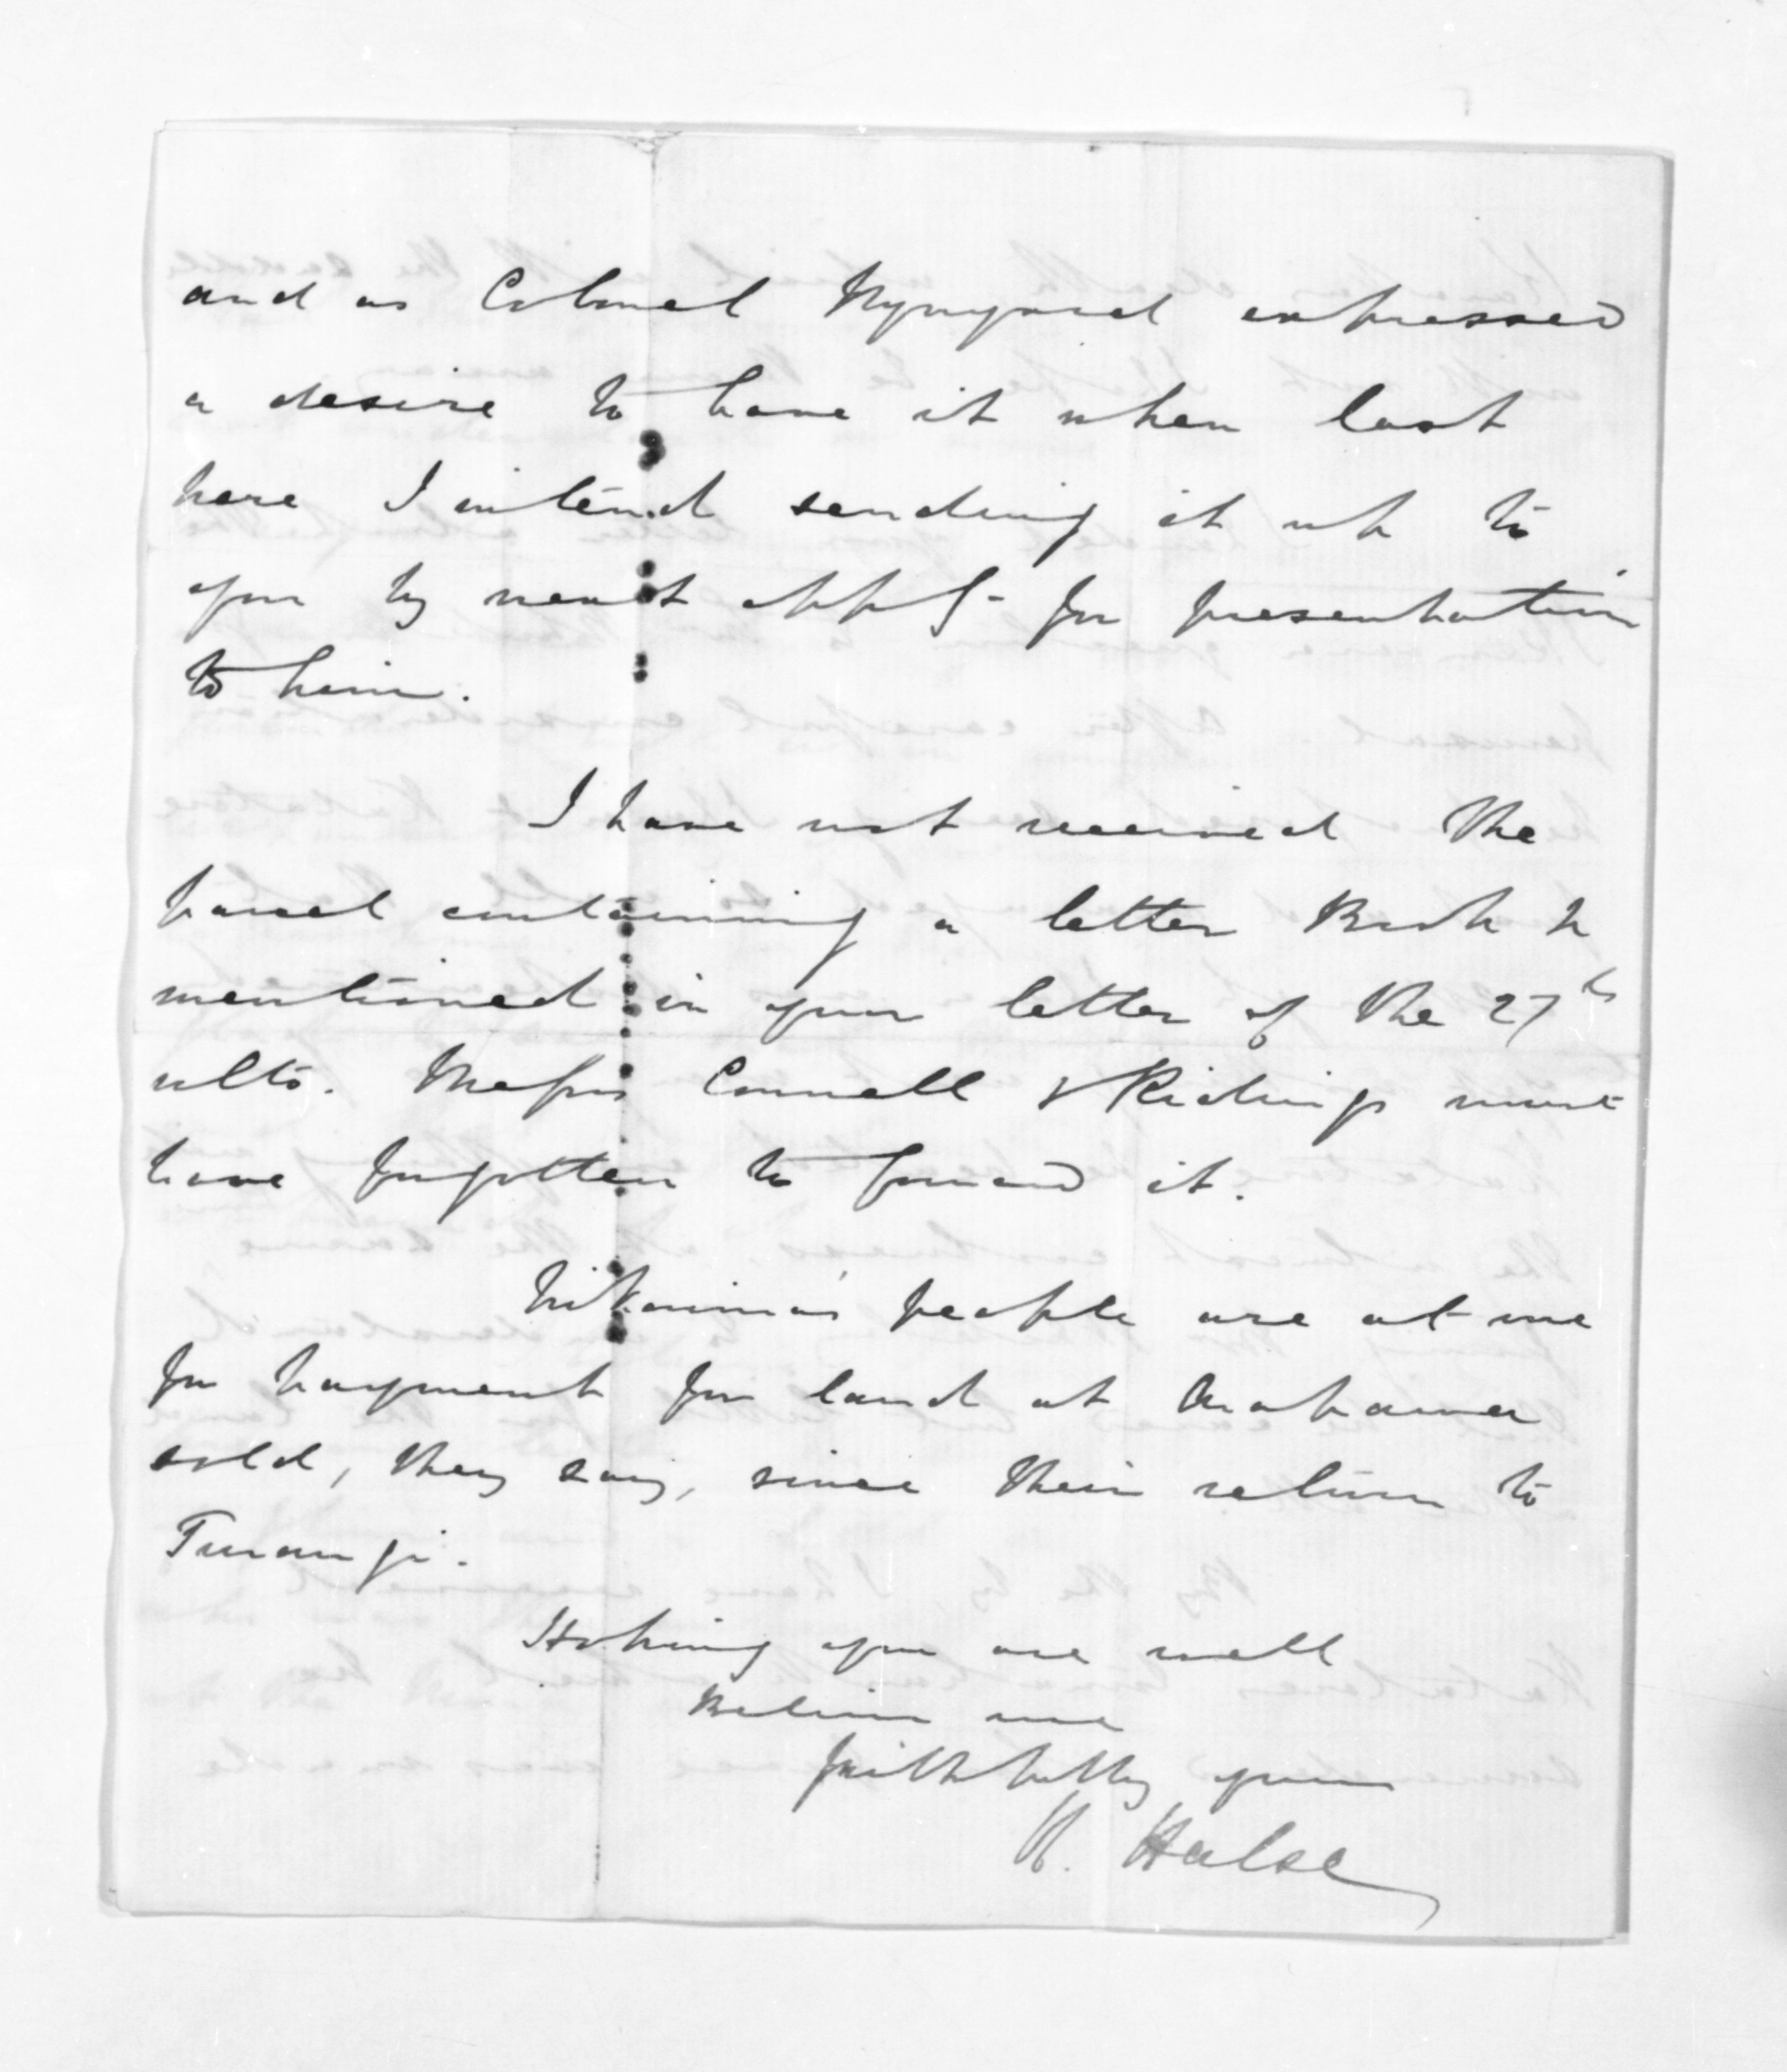 and as Colonel Wynyard expressed
a desire to have it when last
here I intend sending it up to
you by next oppy- for presentation
to him.
I have not received the
parcel containing a letter Book &
mentioned in your letter of the 27th
ulto. Messrs Connell & Ridings must
have forgotten to forward it.
people are at me
for payment for land at
sold, they say, since their return to
Turangi.
Hoping you are well
Believe me
faithfully yours
H. Halse